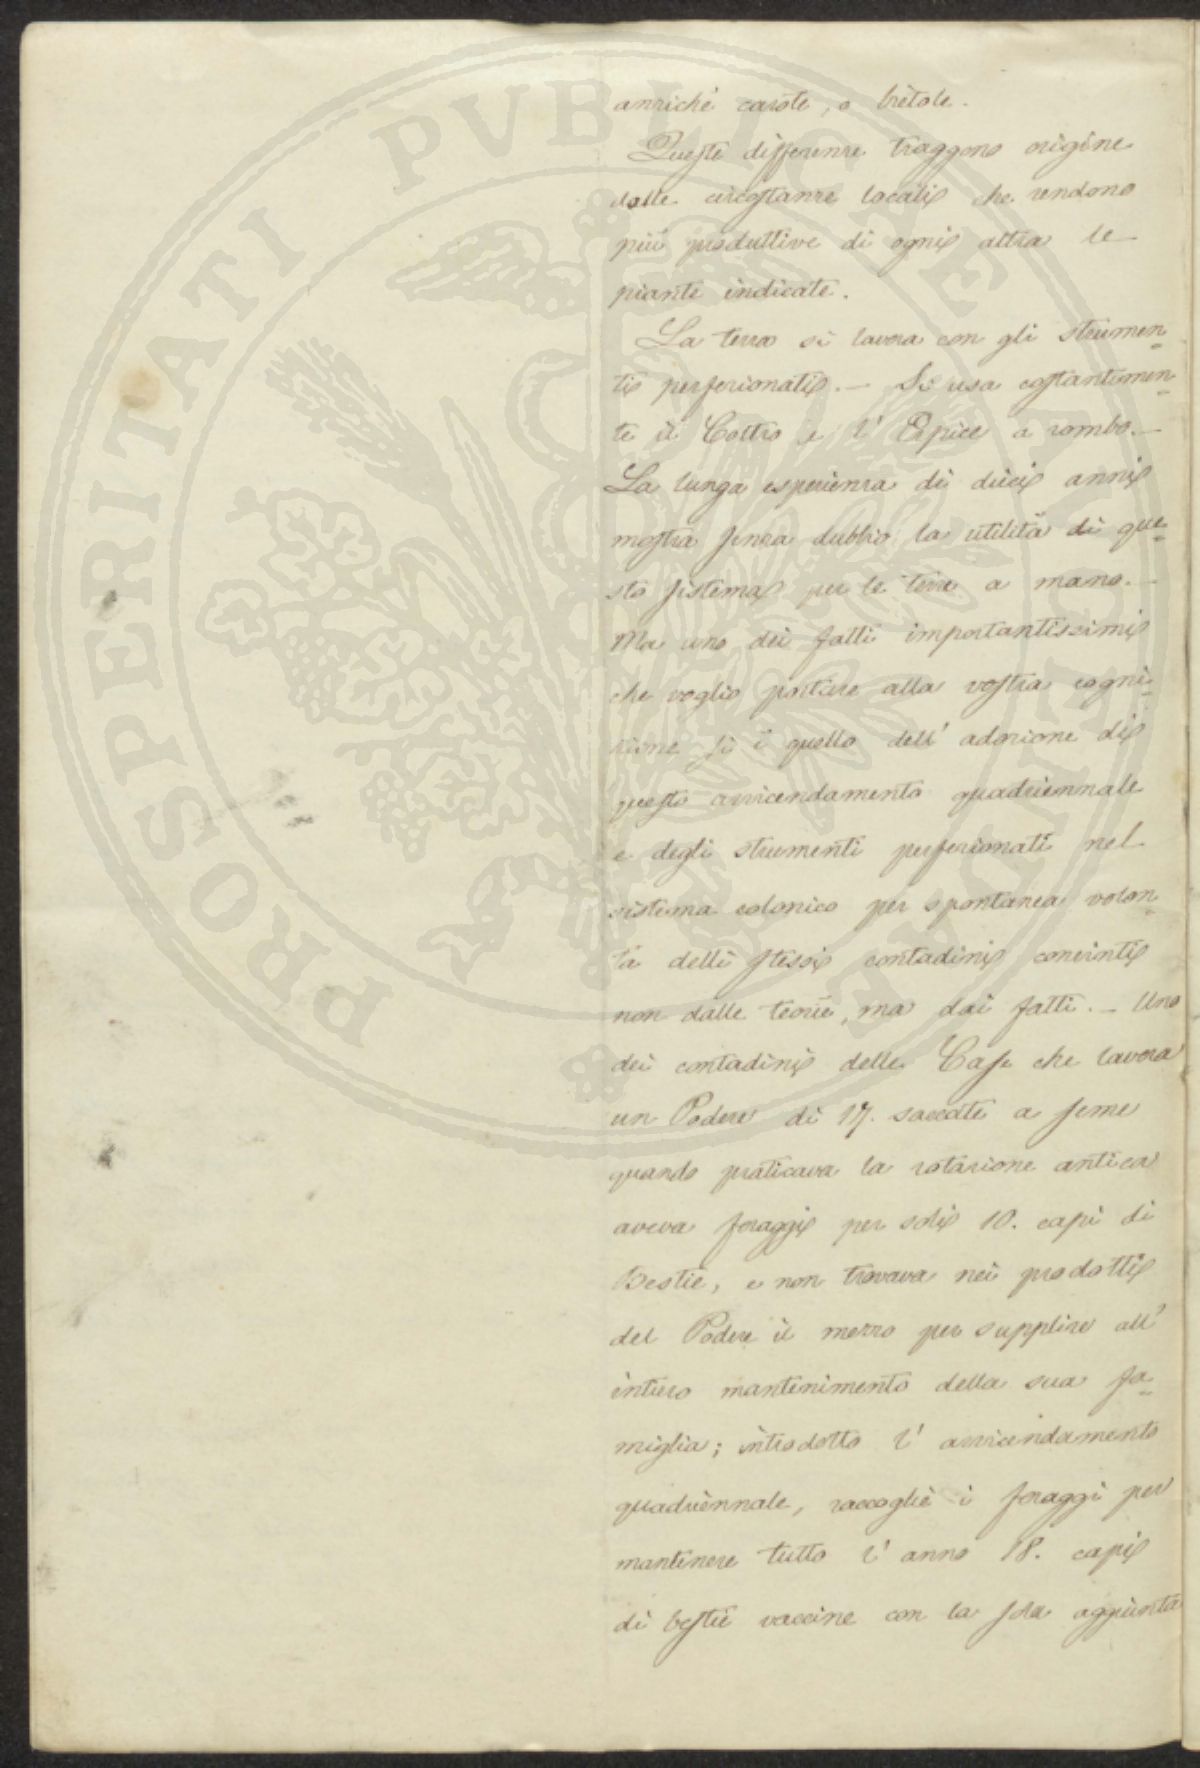 anziché carote, o biètole.
Queste differenze traggono origine
dalle circostanze locali che rendono
più produttive di ogni altra le
piante indicate.
La terra si lavora con gli strumen=
ti perfezionati. — Si usa costantemen=
te il Coltro e l' Erpice a rombo. —
La lunga esperienza di dieci anni
mostra senza dubbio la utilità di que=
sto sistema per le terre a mano. —
Ma uno dei fatti importantissimi
che voglio portare alla vostra cogni=
zione si è quello dell' adozione di
questo avvicendamento quadriennale
e degli strumenti perfezionati nel
sistema colonico per spontanea volon=
tà delli stessi contadini convinti
non dalle teorie, ma dai fatti. — Uno
dei contadini delle Case che lavora
un Podere di 17. saccate a seme
quando praticava la rotazione antica
aveva foraggi per soli 10. capi di
Bestie, e non trovava nei prodotti
del Podere il mezzo per supplire all'
intiero mantenimento della sua fa=
miglia; introdotto l' avvicendamento
quadriennale, raccoglie i foraggi per
mantenere tutto l' anno 18. capi
di bestie vaccine con la sola aggiunta
PROSPERITATI PUBLICAE AUGENDAE